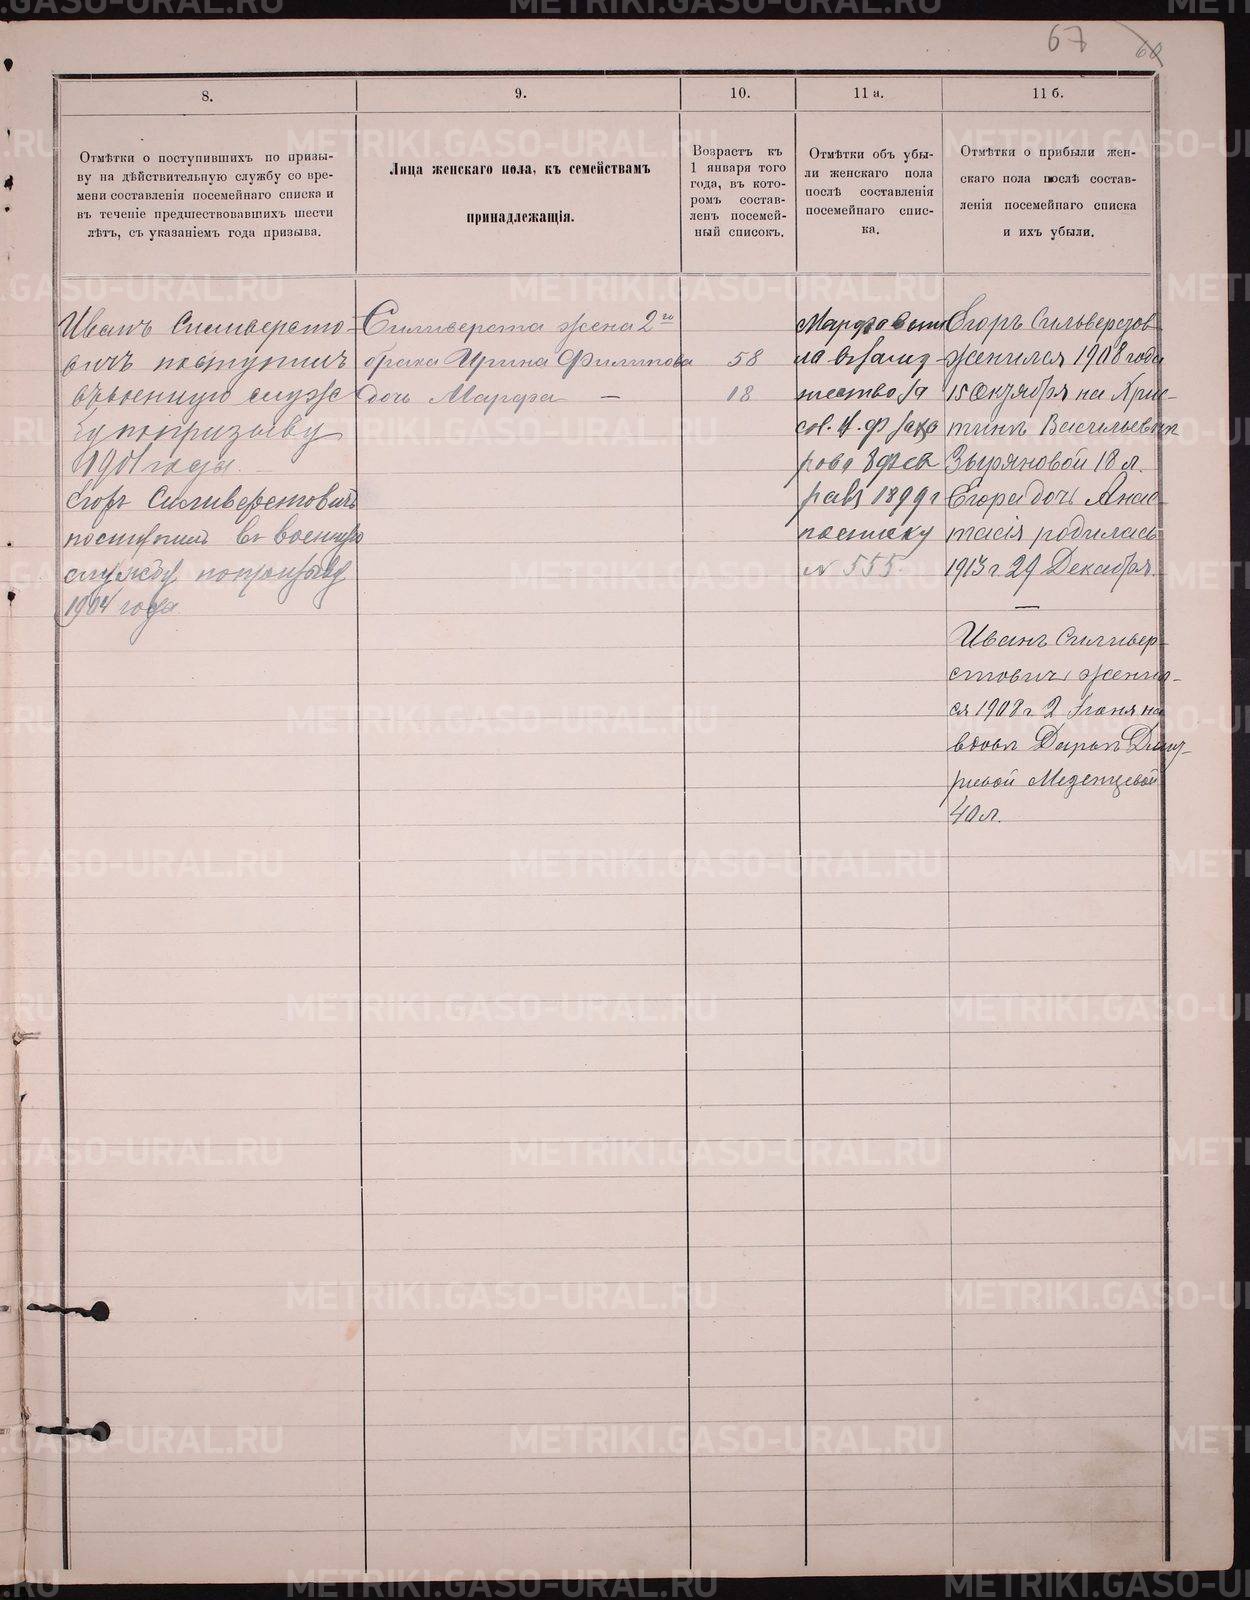 67
60
8.
Отмѣтки о поступившихъ по призы-
ву на дѣйствительную службу со вре-
мени составленія посемейнаго списка и
въ теченіе предшествовавшихъ шести
лѣтъ, съ указаніемъ года призыва.
9.
Лица женскаго пола, къ семействамъ
принадлежащія.
10.
Возрастъ къ
1 января того
года, въ кото-
ромъ состав-
ленъ посемей-
ный списокъ.
11 а.
Отмѣтки объ убы-
ли женскаго пола
послѣ составленія
посемейнаго спис-
ка.
11 б.
Отмѣтки о прибыли жен-
скаго пола послѣ состав-
ленія посемейнаго списка
и ихъ убыли.
Иванъ Силиверсто-
вичъ поступилъ
въ военную служ
бу по призыву
1901 года.
Егоръ Силиверстовичъ
поступилъ въ военную
службу по призыву
1904 года
Силиверста жена 2го
брака Ирина Филипова
дочь Марфа —
58
18
Марфа выш
ла въ замуж-
жество за
8 фев
раля 1899 г
по списку
№ 555.
Егоръ Сильверстов
женился 1908 года
15 Октября на Хрис-
тинѣ Васильевнѣ
Зыряновой 18 л.
Егора дочь Анас-
тасія родилась
1913 г. 29 Декабря.
—
Иванъ Силивер-
стовичъ женил-
ся 1908 г 2 Іюня на
вдовѣ Дарьѣ Дмит-
ріевой Меденцевой
40 л.
METRIKI.GASO-URAL.RU